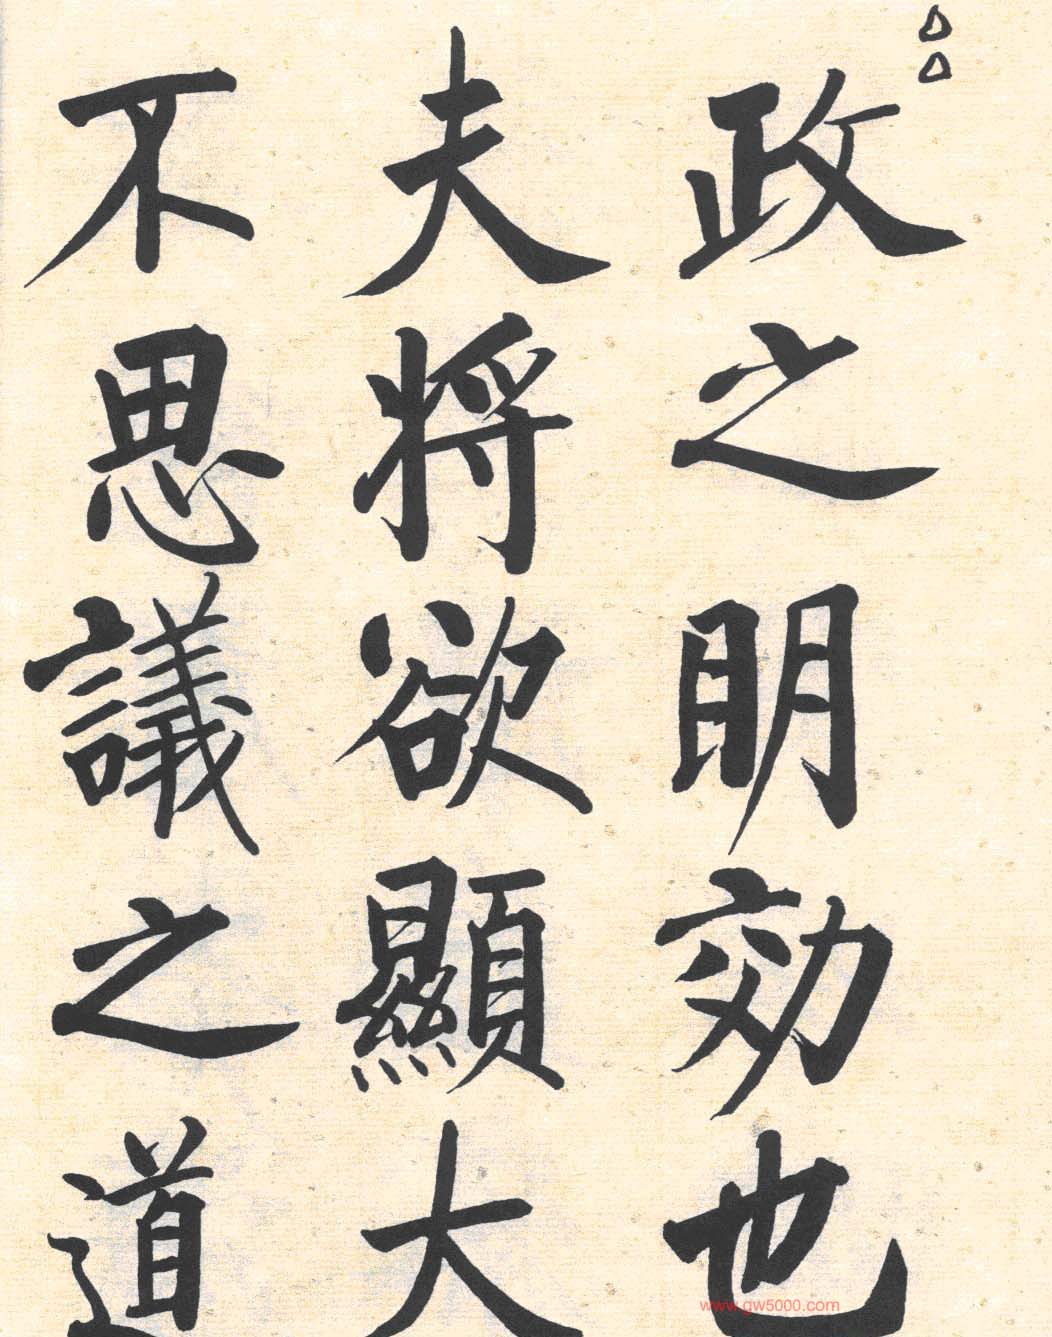 政之明効也
夫将欲顯大
不思議之道
www.gw5000.com